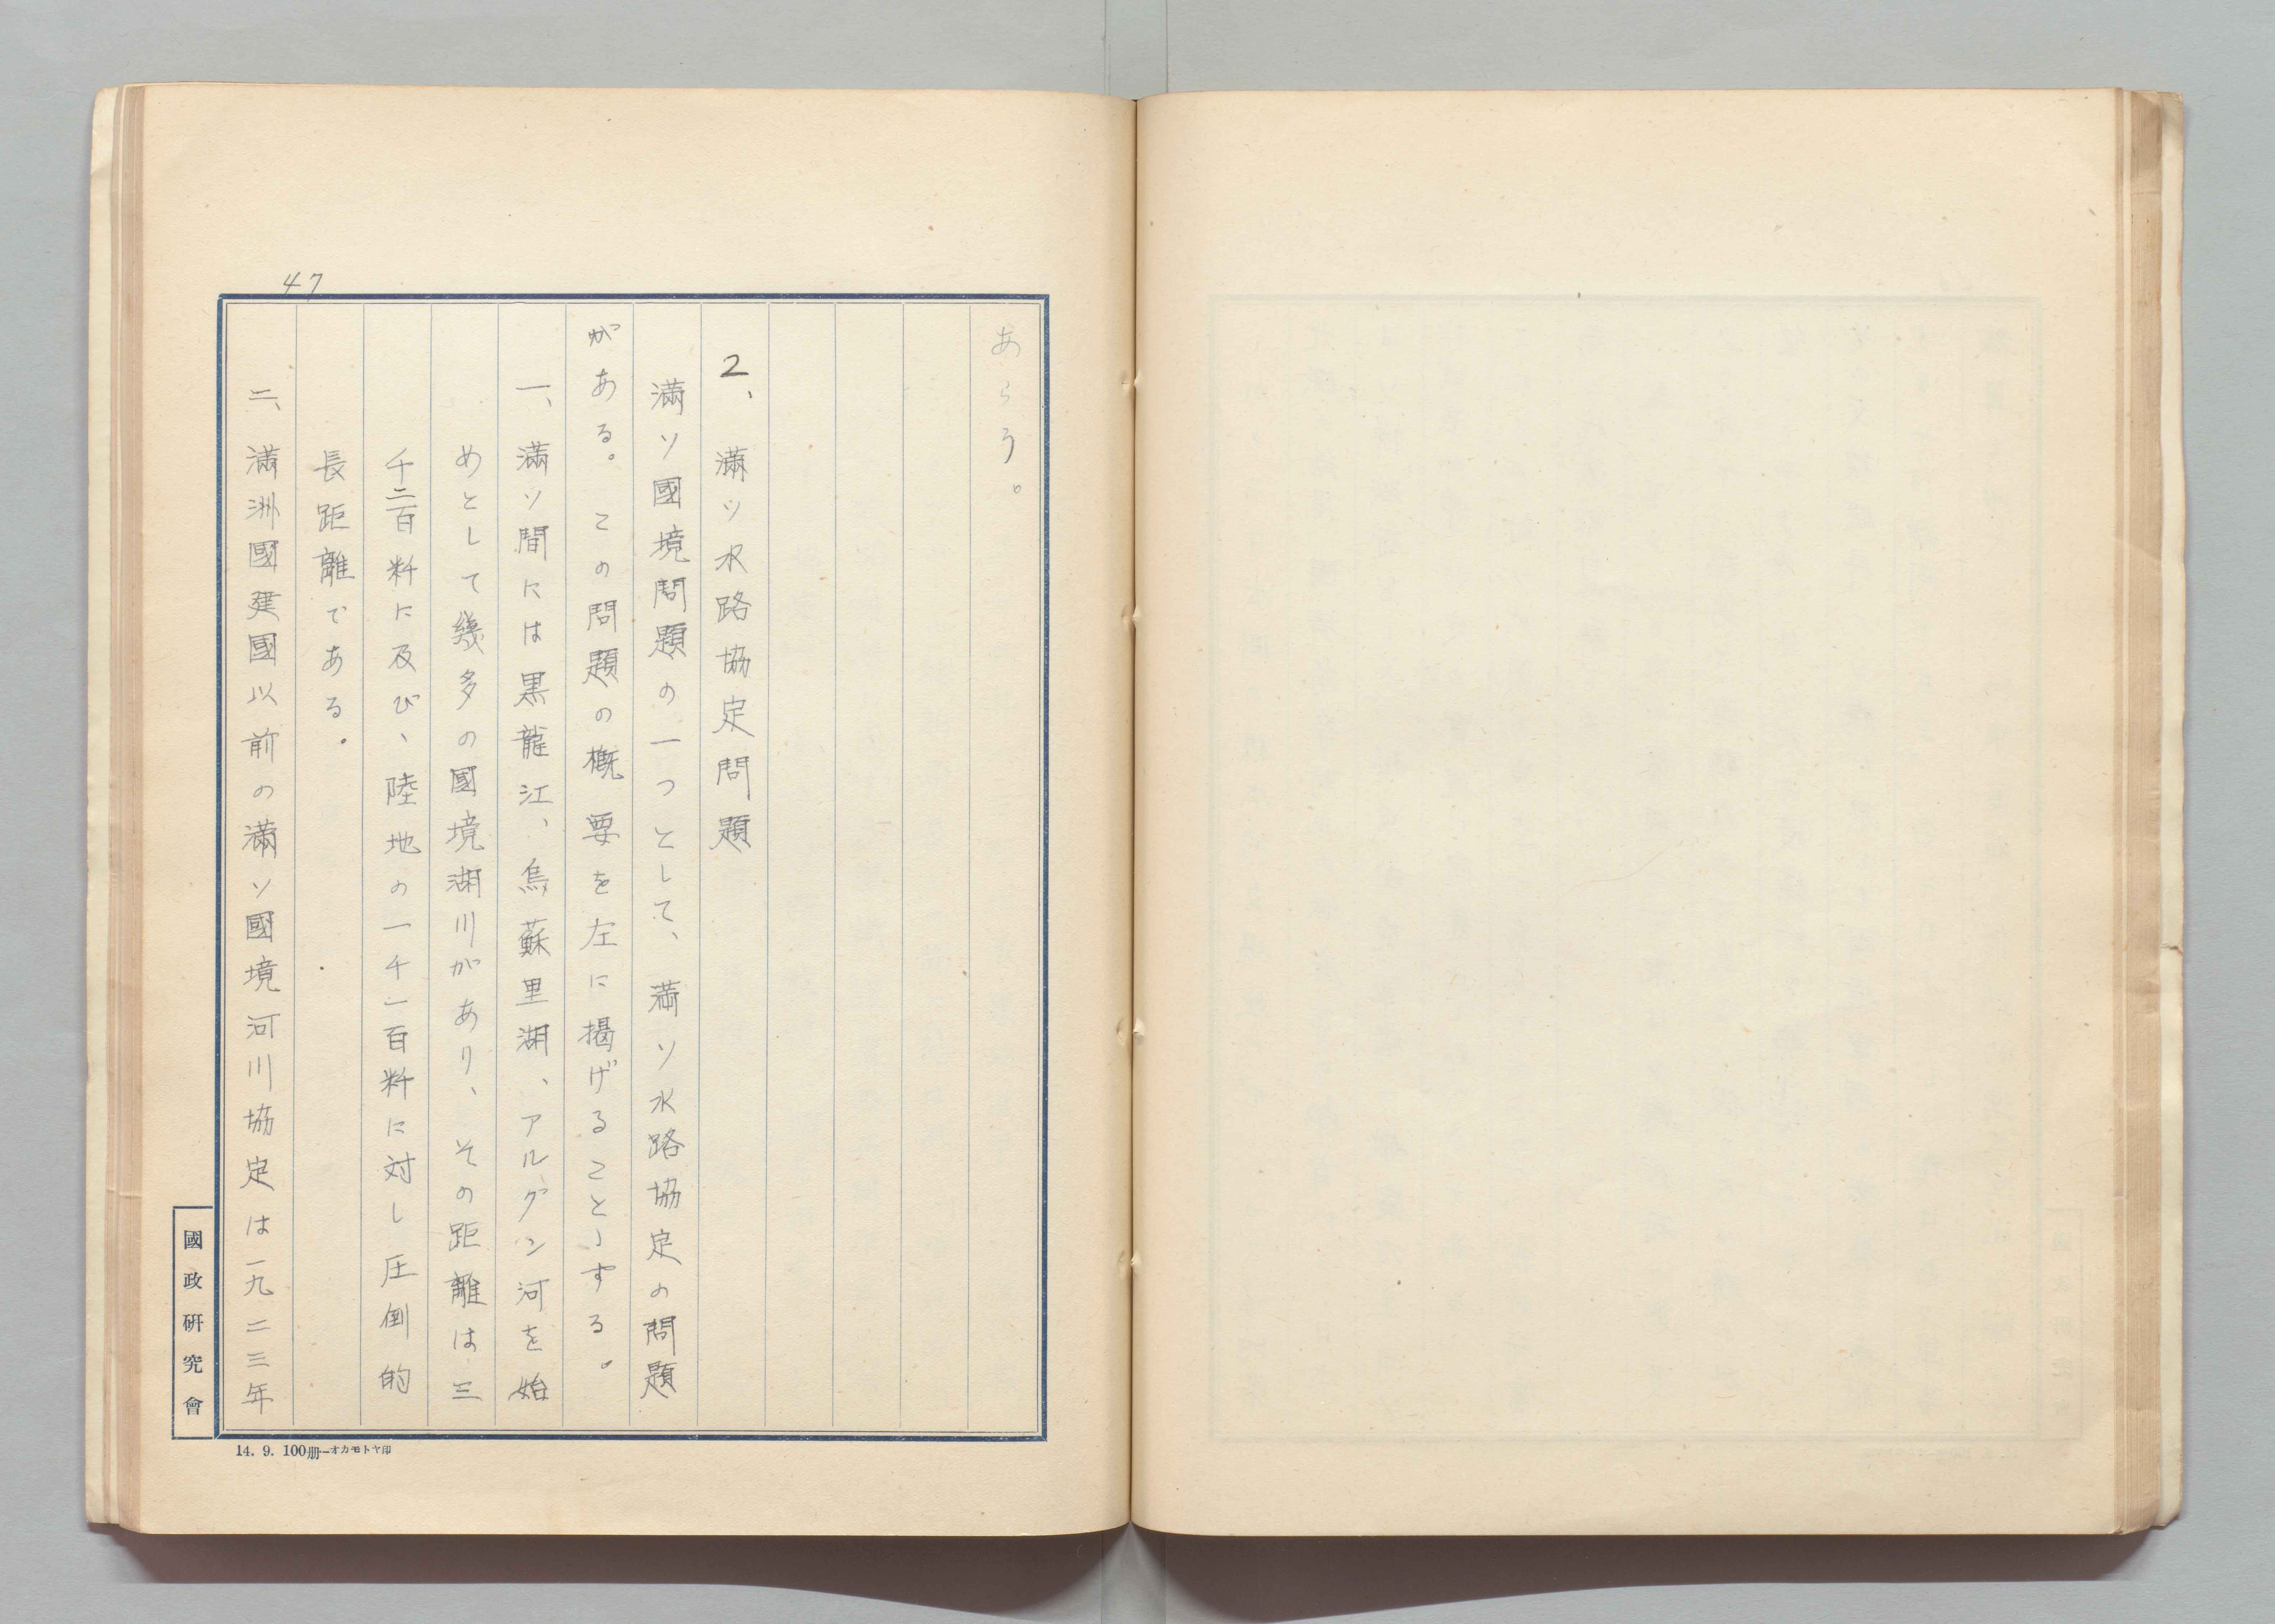 47
あらう。
2、満ソ水路協定問題
満ソ國境問題の一つとして、満ソ水路協定の問題
がある。この問題の概要を左に掲げることゝする。
一、満ソ間には黒龍江、烏蘇里湖、アルグン河を始
めとして幾多の國境湖川があり、その距離は三
千二百粁に及び、陸地の一千一百粁に対し圧倒的
長距離である。
二、満洲國建國以前の満ソ國境河川協定は一九二三年
國政硏究會
14. 9. 100册—オカモトヤ印